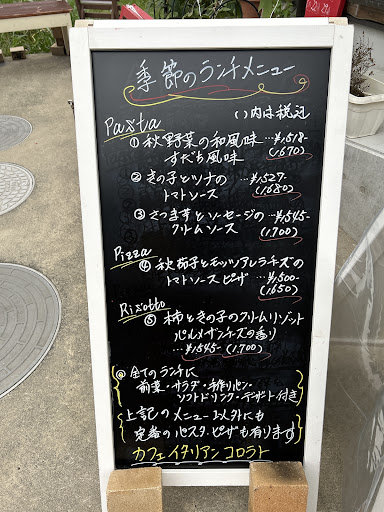 季節のランチメニュー
( )内は税込
Pasta
①秋野菜の和風味 …¥1,518-
すだち風味 (1,670)
②きの子とツナの …¥1,527-
トマトソース (1,680)
③さつま芋とソーセージの …¥1,545-
クリームソース (1,700)
Pizza
④秋茄子とモッツァレラチーズの
トマトソースピザ …¥1,500-
(1,650)
Risotto
⑤柿ときの子のクリームリゾット
パルメザンチーズの香り
…¥1,545- (1,700)
◎全てのランチに
前菜・サラダ・手作りパン・
ソフトドリンク・デザート付き
上記のメニュー以外にも
定番のパスタ・ピザも有ります
カフェイタリアン コロラト